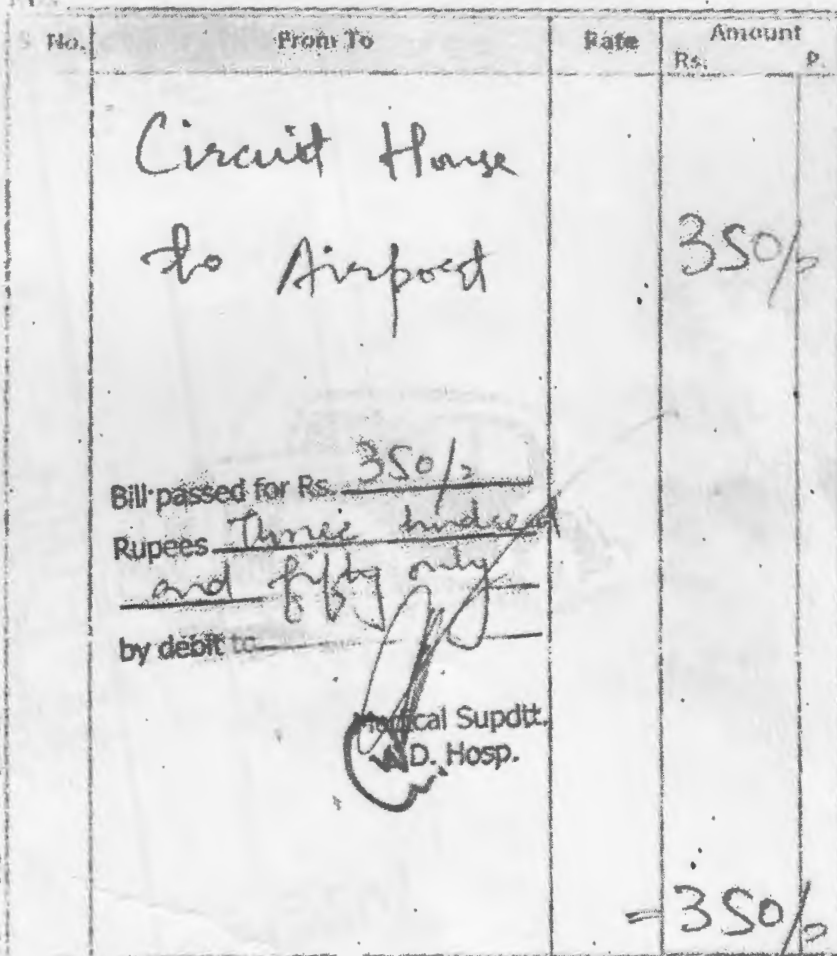 S No. From To Rate Amount
Rs. P.
Circuit House
to Airport 350/-
Bill passed for Rs. 350/-
Rupees Three hundred
and fifty only
by debit to
Medical Supdt.
D. Hosp.
= 350/-